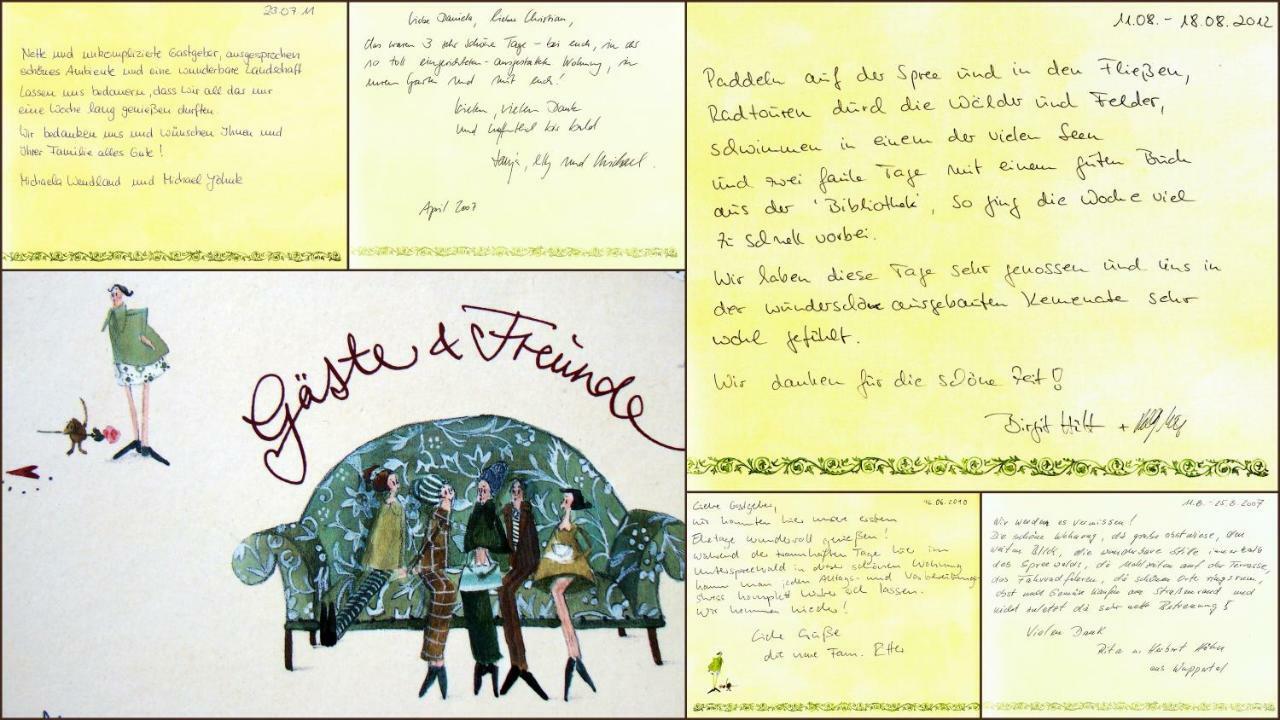 23.07.11
Nette und unkomplizierte Gastgeber, ausgesprochen
schönes Ambiente und eine wunderbare Landschaft
lassen uns bedauern, dass wir all das nur
eine Woche lang genießen durften.
Wir bedanken uns und wünschen Ihnen und
Ihrer Familie alles Gute!
Michaela Wendland und Michael
Liebe Daniela, lieber Christian,
das waren 3 sehr schöne Tage – bei euch, in der
so toll eingerichteten - ausgestatteten Wohnung, in
eurem Garten und mit euch!
Vielen, vielen Dank
und hoffentlich bis bald
und Michael.
April 2007
Gäste & Freunde
11.08. - 18.08.2012
Paddeln auf der Spree und in den Fließen,
Radtouren durch die Wälder und Felder,
schwimmen in einem der vielen Seen
und zwei faule Tage mit einem guten Buch
aus der 'Bibliothek', so ging die Woche viel
zu schnell vorbei.
Wir haben diese Tage sehr genossen und uns in
der wunderschöne ausgebauten Kemenate sehr
wohl gefühlt.
Wir danken für die schöne Zeit!
Birgit +
.06.2010
Liebe Gastgeber,
wir konnten hier unsere ersten
Ehetage wundervoll genießen!
Während der traumhaften Tage hier im
Unterspreewald in dieser schönen Wohnung
kann man jeden Alltags- und Vorbereitungs-
stress komplett hinter sich lassen.
Wir kommen wieder!
Liebe Grüße
die neue Fam. Ritter
11.8. - 25.8.2007
Wir werden es vermissen!
Die schöne Wohnung, die große Obstwiese, den
weiten Blick, die wunderbare Stille innerhalb
des Spreewalds, die Mahlzeiten auf der Terrasse,
das Fahrradfahren, die schönen Orte ringsum,
Obst und Gemüse kaufen am Straßenrand und
nicht zuletzt die sehr nette Betreuung!
Vielen Dank
Rita u. Herbert
aus Wuppertal